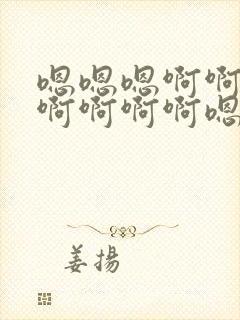 嗯嗯嗯啊啊
啊啊啊啊嗯
姜扬